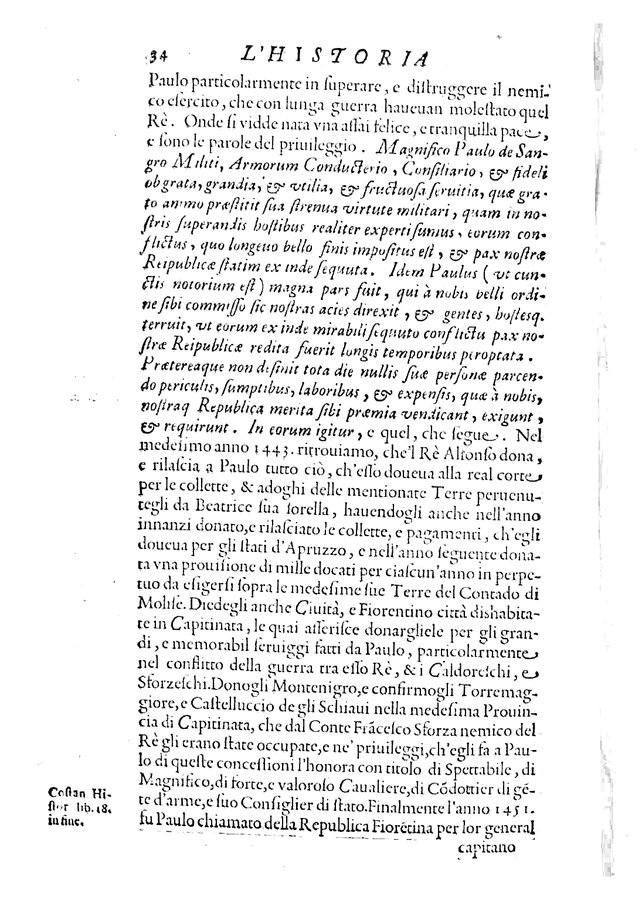 34 L'HISTORIA
Paulo particolarmente in ſuperare, e diſtruggere il nemi-
co eſercito, che con lunga guerra haueuan moleſtato quel
Rè. Onde ſi vidde nata vna aſſai felice, e tranquilla pace,
e ſono le parole del priuileggio. Magnifico Paulo de San-
gro Militi, Armorum Conducterio, Conſiliario, & fideli
ob grata, grandia, & vtilia, & fructuoſa ſeruitia, quæ gra-
to animo præſtitit ſua ſtrenua virtute militari, quam in no-
ſtris ſuperandis hoſtibus realiter expertiſumus, eorum con-
flictus, quo longeuo bello finis impoſitus eſt, & pax noſtræ
Reipublicæ ſtatim ex inde ſequuta. Idem Paulus (vt cun-
ctis notorium eſt) magna pars fuit, qui à nobis belli ordi-
ne ſibi commiſſo ſic noſtras acies direxit, & gentes, hoſteſq.
terruit, vt eorum ex inde mirabili ſequuto conflictu pax no-
ſtræ Reipublicæ redita fuerit longis temporibus peroptata.
Prætereaque non deſinit tota die nullis ſuæ perſonæ parcen-
do periculis, ſumptibus, laboribus, & expenſis, quæ à nobis,
noſtraq Republica merita ſibi præmia vendicant, exigunt,
& requirunt. In eorum igitur, e quel, che ſegue. Nel
medeſimo anno 1443. ritrouiamo, che'l Rè Alfonſo dona,
e rilaſcia a Paulo tutto ciò, ch'eſſo doueua alla real corte
per le collette, & adoghi delle mentionate Terre peruenu-
tegli da Beatrice ſua ſorella, hauendogli anche nell'anno
innanzi donato, e rilaſciato le collette, e pagamenti, ch'egli
doueua per gli ſtati d'Apruzzo, e nell'anno ſeguente dona-
ta vna prouiſione di mille docati per ciaſcun'anno in perpe-
tuo da eſigerſi ſopra le medeſime ſue Terre del Contado di
Moliſe. Diedegli anche Ciuità, e Fiorentino città dishabita-
te in Capitinata, le quai aſſeriſce donargliele per gli gran-
di, e memorabil ſeruiggi fatti da Paulo, particolarmente
nel conflitto della guerra tra eſſo Rè, & i Caldoreſchi, e
Sforzeſchi. Donogli Montenigro, e confirmogli Torremag-
giore, e Caſtelluccio de gli Schiaui nella medeſima Prouin-
cia di Capitinata, che dal Conte Frãceſco Sforza nemico del
Rè gli erano ſtate occupate, e ne' priuileggi, ch'egli fa a Pau-
lo di queſte conceſſioni l'honora con titolo di Spettabile, di
Magnifico, di forte, e valoroſo Caualiere, di Cõdottier di gẽ-
te d'arme, e ſuo Conſiglier di ſtato. Finalmente l'anno 1451.
fu Paulo chiamato della Republica Fiorẽtina per lor general
capitano
Coſtan Hi-
ſtor lib. 18.
in fine.